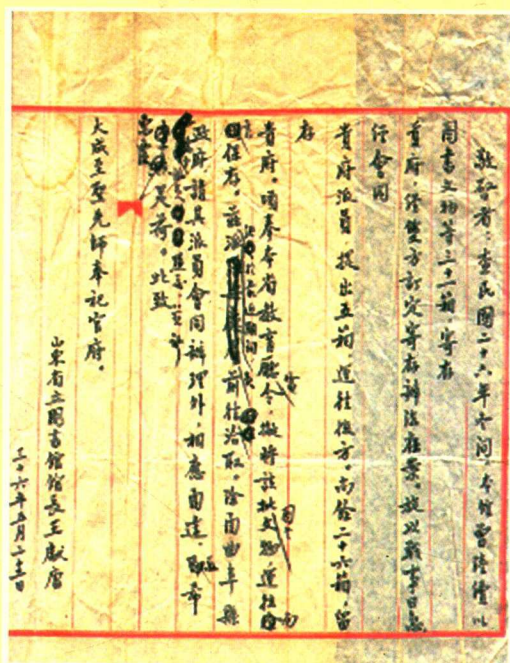 敬啓者,查民國二十六年冬間,本館曾陸續以
圖書文物等三十一箱,寄存
貴府,經雙方訂定寄存辦法在案。旋以戰事日急
經會同
貴府派員,提出五箱,運往後方。尚餘二十六箱,留
存
貴府。頃奉本省教育廳令,擬將該批文物運往
保存。茲派 前往洽取。除函曲阜縣
政府,請其派員會同辦理外,相應函達,即希
是荷。此致
大成至聖先師奉祀官府。
山東省立圖書館館長王獻唐
三十六年五月二十二日